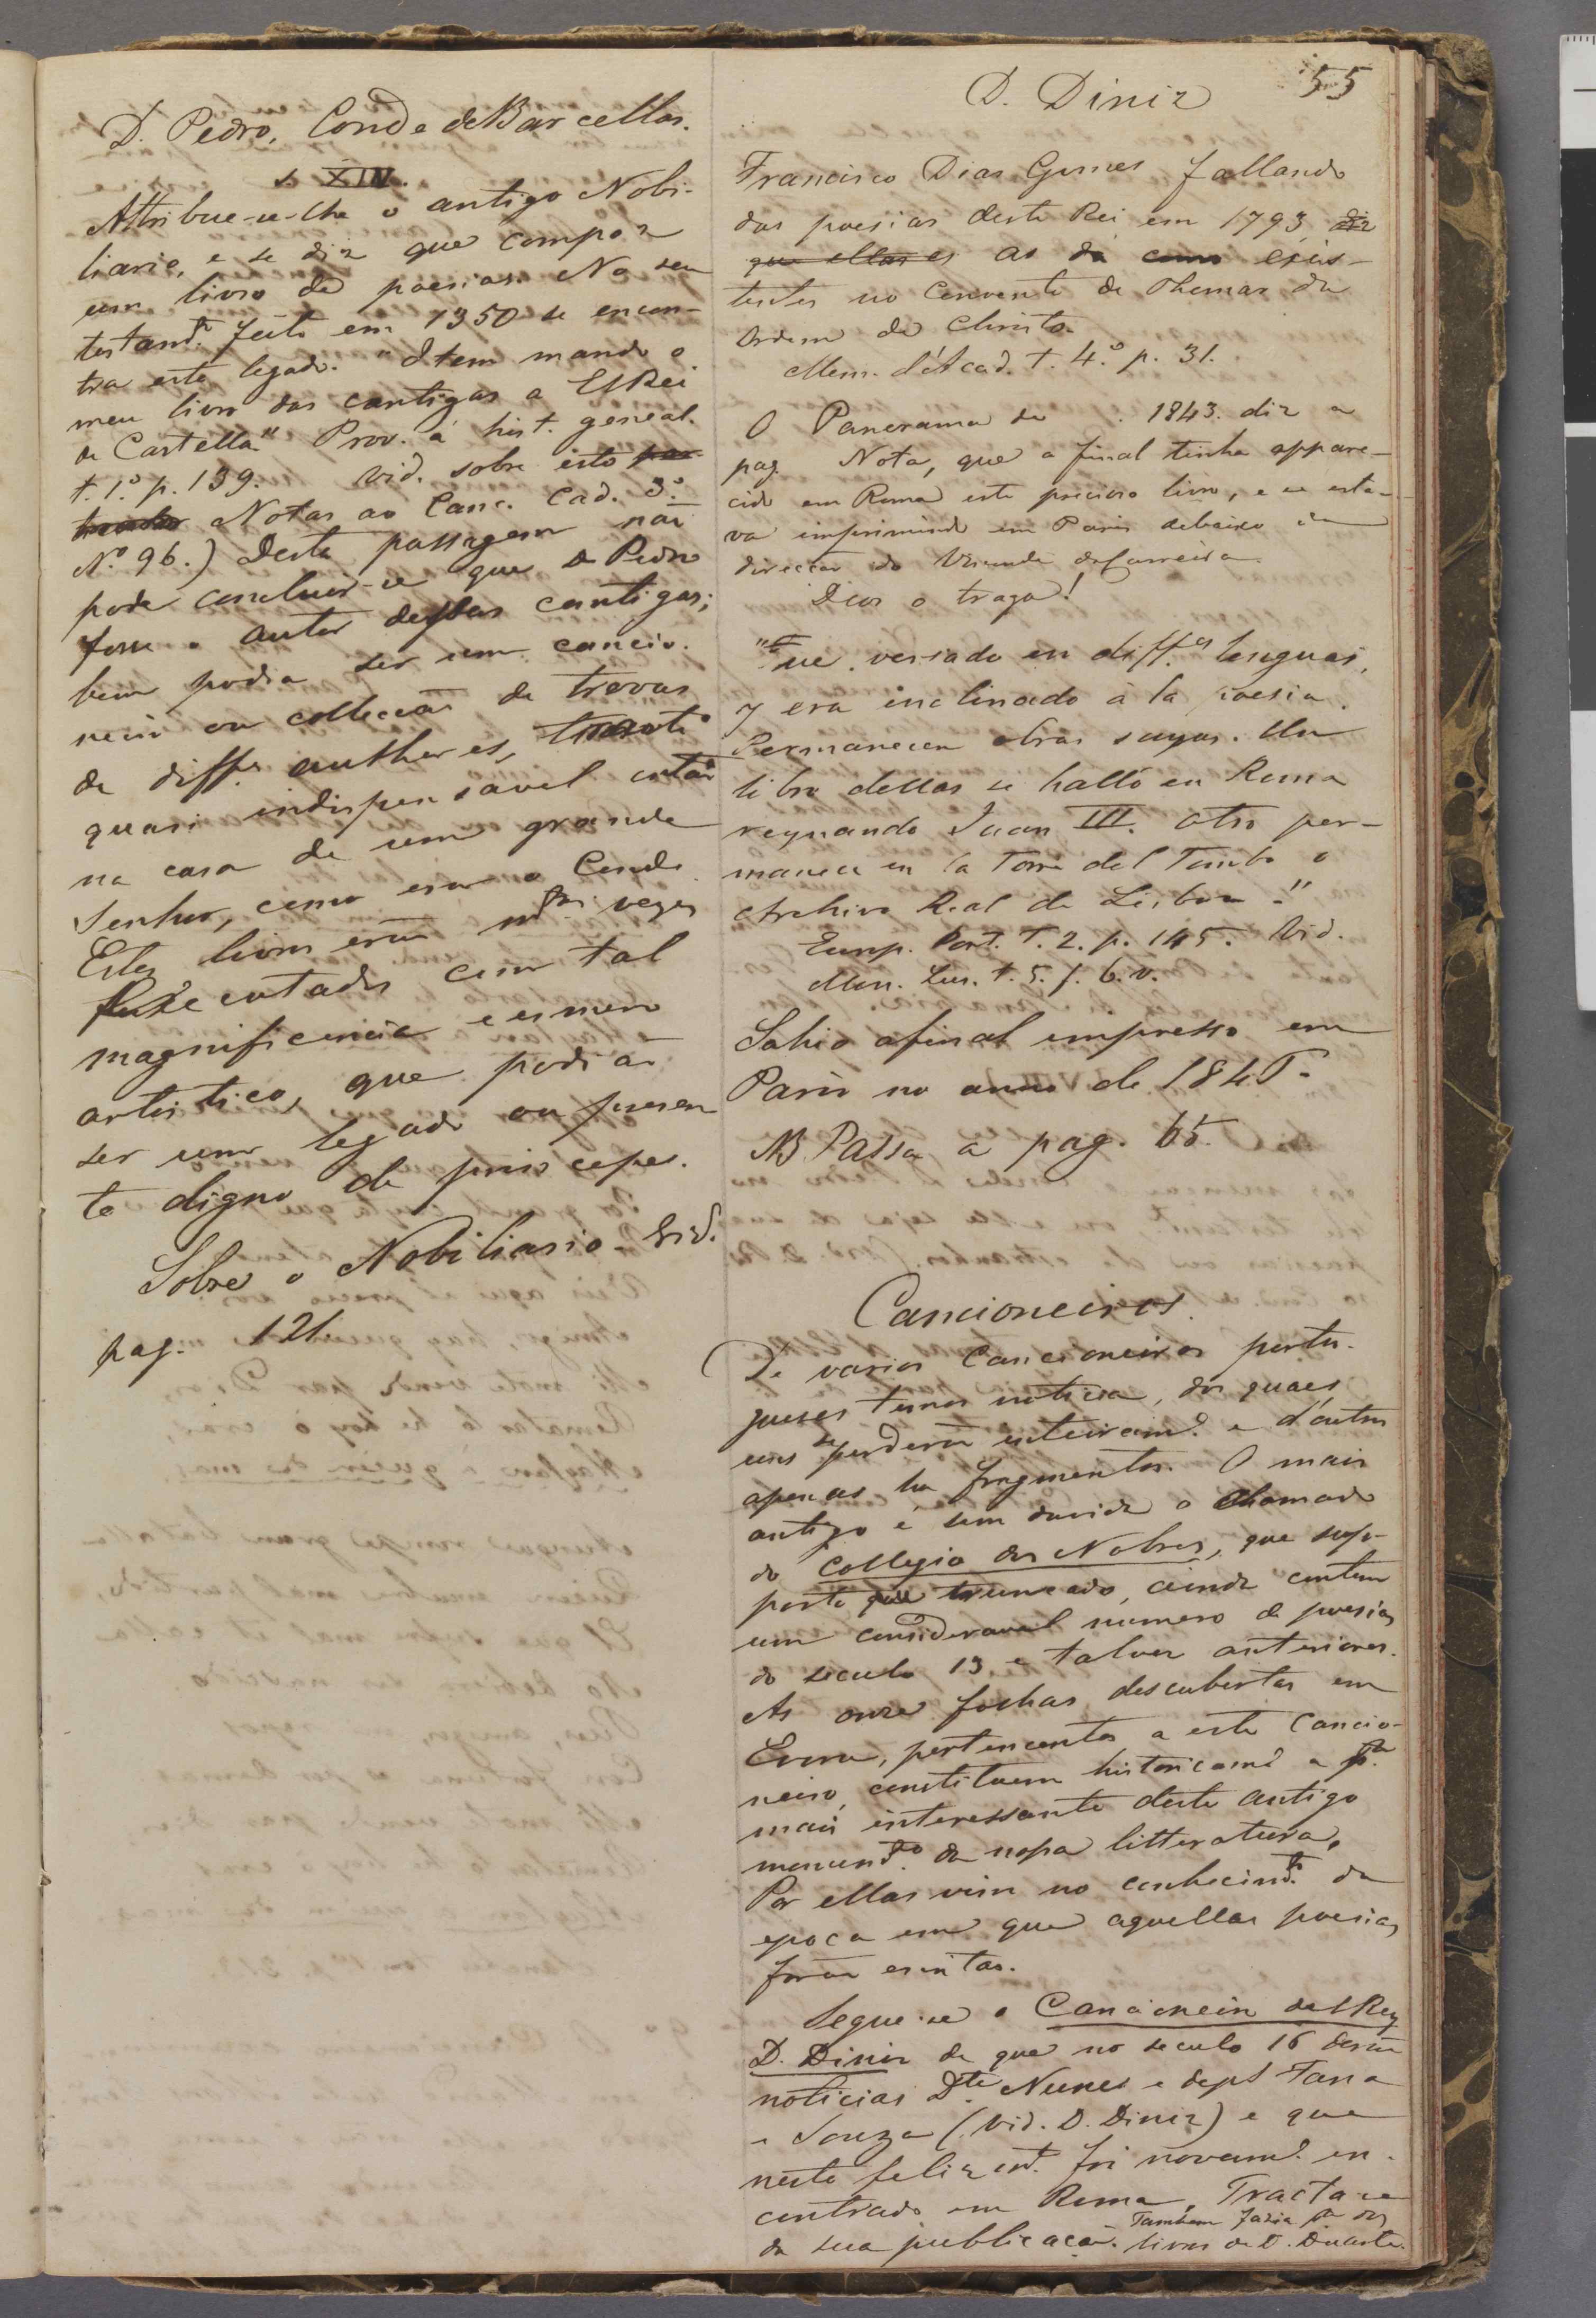 D. Pedro, Conde de Barcellos.
s. XIV.
Attribue-se-lhe o antigo Nobi-
liario, e se diz que compoz
um livro de poesias. No seu
testamto. feito em 1350 se encon-
tra este legado. "Item mando o
meu livro das cantigas a ElRei
de Castella" Prov. á hist. geneal.
t. 1.º p. 139. Vid. sobre isto
Notas ao Canc. Cad. 3.º
N.º 96.) Desta passagem não
pode concluir-se que D. Pedro
fosse o autor dessas cantigas;
bem podia ser um cancio-
neiro ou collecção de trovas
de differ.es authores,
quasi indispensavel então
na casa de um grande
Senhor, como era o Conde.
Estes livros erão m.tas vezes
executados com tal
magnificencia e esmero
artistico, que podião
ser um legado ou presen
te digno de principes.
Sobre o Nobiliario Vid.
pag. 121
55
D. Diniz
Francisco Dias Gomes fallando
das poesias deste Rei em 1793, diz
que ellas es as dá como exis-
tentes no Convento de Thomar da
Ordem de Christo.
Mem. d'Acad. t. 4.º p. 31.
O Panorama de 1843. diz a
pag. Nota, que a final tinha appare-
cido em Roma este precioso livro, e se esta-
va imprimindo em Paris debaixo da
direcção do Visconde da Carreira.
Deos o traga!
"Fue versado en diff.es lenguas,
y era inclinado à la poesia.
Permanecen obras suyas. Un
libro dellas se halló en Roma
reynando Juan III. otro per-
manece en la Torre del Tombo o
Archivo Real de Lisboa."
Europ. Port. T. 2. p. 145. Vid.
Mon. Lus. t. 5. f. 6. v.
Sahio afinal impresso em
Paris no anno de 1847.
NB Passa a pag. 65.
Cancioneiros.
De varios Cancioneiros portu-
gueses temos noticia, dos quaes
uns se perderão inteiram.e e d'outros
apenas ha fragmentos. O mais
antigo é sem duvida o chamado
do Collegio dos Nobres, que sup-
posto que truncado, ainda contem
um consideravel numero de poesias
do seculo 13 e talvez anteriores.
As onze folhas descubertas em
Evora, pertencentes a este Cancio-
neiro, constituem historicam.e a p.te
mais interessante deste antigo
monum.to da nossa litteratura.
Por ellas vim no conhecim.to da
epoca em que aquellas poesias
forão escritas.
Segue-se o Cancioneiro delRey
D. Diniz de que no seculo 16 derão
noticias D.te Nunes e dep.s Faria
e Souza (Vid. D. Diniz) e que
neste felizm.te foi novam.e en-
contrado em Roma. Tracta-se
da sua publicação. Tambem fazia p.te dos
livros de D. Duarte.